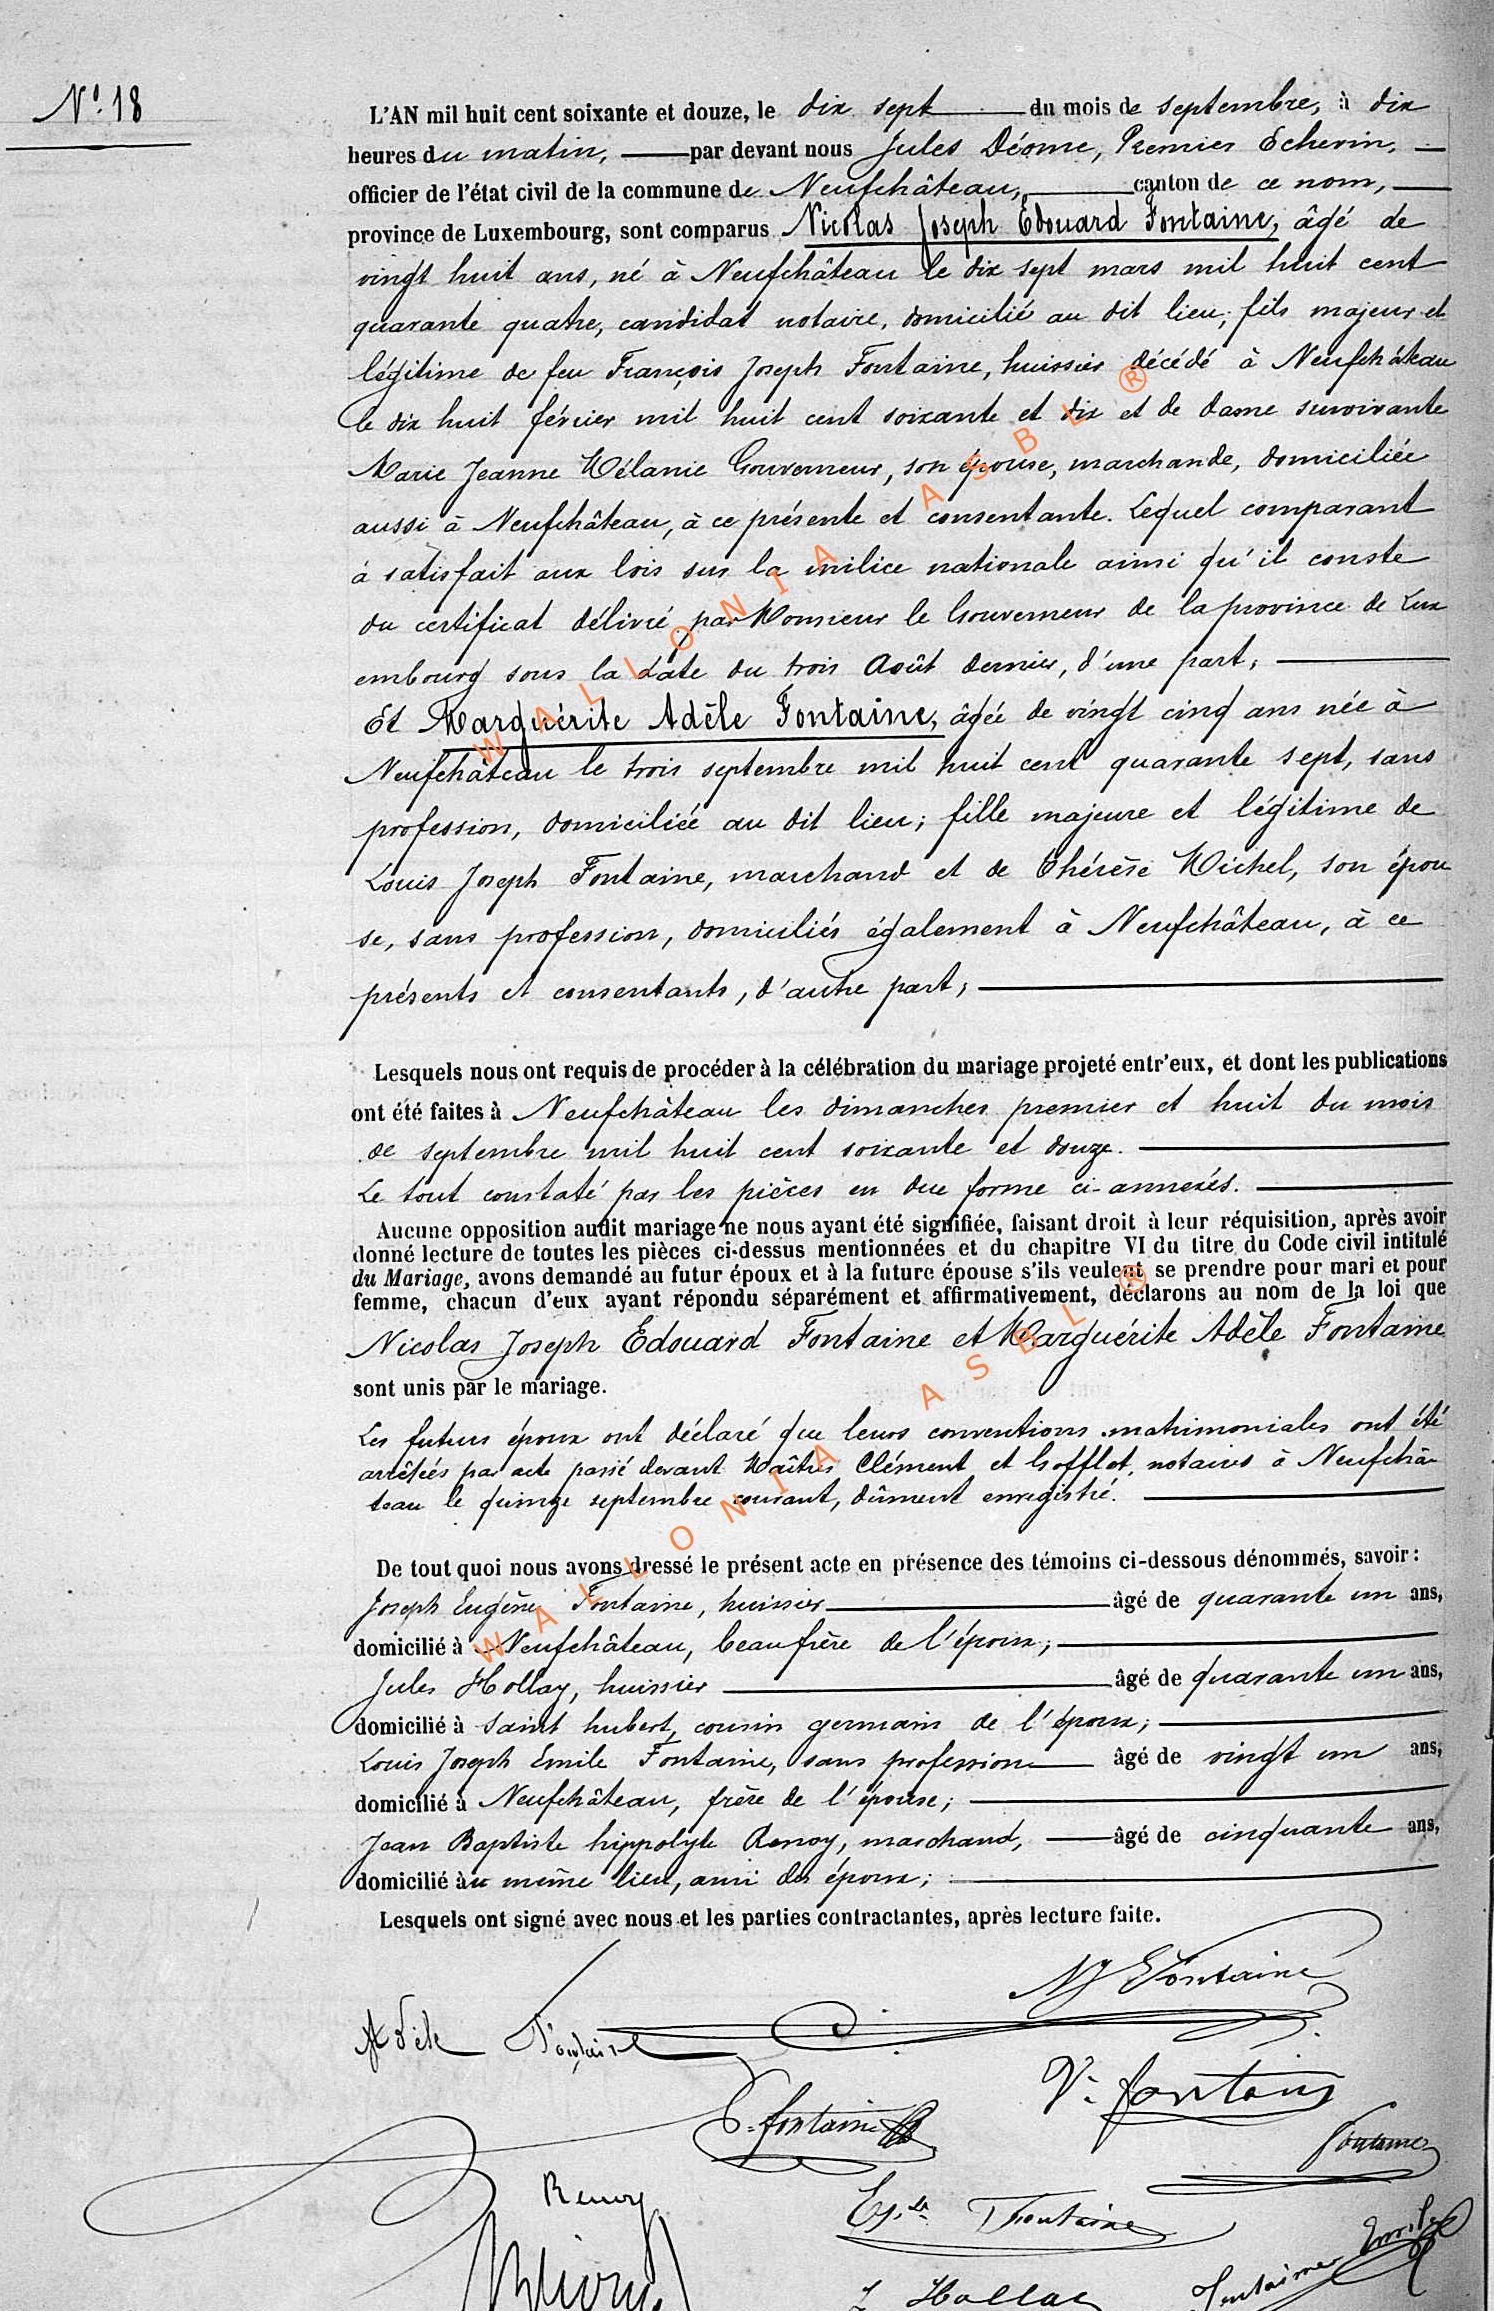 N° 18
L'AN mil huit cent soixante et douze, le dix sept du mois de septembre, à dix
heures du matin, par devant nous Jules Déome, Premier Echevin,
officier de l'état civil de la commune de Neufchâteau, canton de ce nom,
province de Luxembourg, sont comparus Nicolas Joseph Edouard Fontaine, âgé de
vingt huit ans, né à Neufchâteau le dix sept mars mil huit cent
quarante quatre, candidat notaire, domicilié au dit lieu; fils majeur et
légitime de feu François Joseph Fontaine, huissier décédé à Neufchâteau
le dix huit février mil huit cent soixante et dix et de dame survivante
Marie Jeanne Mélanie Gouverneur, son épouse, marchande, domiciliée
aussi à Neufchâteau, à ce présente et consentante. Lequel comparant
à satisfait aux lois sur la milice nationale ainsi qu'il conste
du certificat délivré par Monsieur le Gouverneur de la province de Lux
embourg sous la date du trois Août dernier, d'une part;
Et Marguérite Adèle Fontaine, âgée de vingt cinq ans née à
Neufchâteau le trois septembre mil huit cent quarante sept, sans
profession, domiciliée au dit lieu; fille majeure et légitime de
Louis Joseph Fontaine, marchand et de Thérèse Michel, son épou
se, sans profession, domiciliés également à Neufchâteau, à ce
présents et consentants, d'autre part;
Lesquels nous ont requis de procéder à la célébration du mariage projeté entr'eux, et dont les publications
ont été faites à Neufchâteau les dimanches premier et huit du mois
de septembre mil huit cent soixante et douze.
Le tout constaté par les pièces en due forme ci-annexés.
Aucune opposition audit mariage ne nous ayant été signifiée, faisant droit à leur réquisition, après avoir
donné lecture de toutes les pièces ci-dessus mentionnées et du chapitre VI du titre du Code civil intitulé
du Mariage, avons demandé au futur époux et à la future épouse s'ils veulent se prendre pour mari et pour
femme, chacun d'eux ayant répondu séparément et affirmativement, déclarons au nom de la loi que
Nicolas Joseph Edouard Fontaine et Marguérite Adèle Fontaine
sont unis par le mariage.
Les futurs époux ont déclaré que leurs conventions matrimoniales ont été
arrêtées par acte passé devant Maîtres Clément et Gofflot, notaires à Neufchâ-
teau le quinze septembre courant, dûment enregistré.
De tout quoi nous avons dressé le présent acte en présence des témoins ci-dessous dénommés, savoir:
Joseph Eugène Fontaine, huissier âgé de quarante un ans,
domicilié à Neufchâteau, beaufrère de l'époux;
Jules Hollay, huissier âgé de quarante un ans,
domicilié à Saint hubert, cousin germain de l'époux;
Louis Joseph Emile Fontaine, sans profession âgé de vingt un ans,
domicilié à Neufchâteau, frère de l'épouse;
Jean Baptiste hippolyte Renoy, marchand, âgé de cinquante ans,
domicilié au même lieu, ami des époux;
Lesquels ont signé avec nous et les parties contractantes, après lecture faite.
NJ E Fontaine
Adèle Fontaine
Ve fontaine
fontaine
Fontaine
Renoy
Fontaine
Fontaine Emile
J Hollay
WALLONIA ASBL ®
WALLONIA ASBL ®